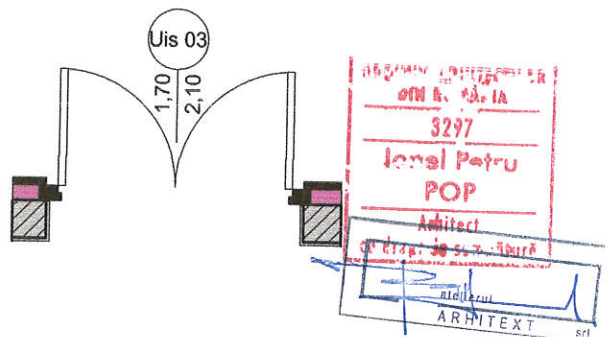 Uis 03
1,70
2,10
DIN
3297
Ionel Petru
POP
Arhitect
cu drept de
atelierul
ARHITEXT srl